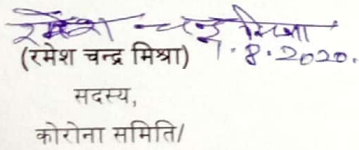 रमेश चन्द्र मिश्रा
1.8.2020.
(रमेश चन्द्र मिश्रा)
सदस्य,
कोरोना समिति/